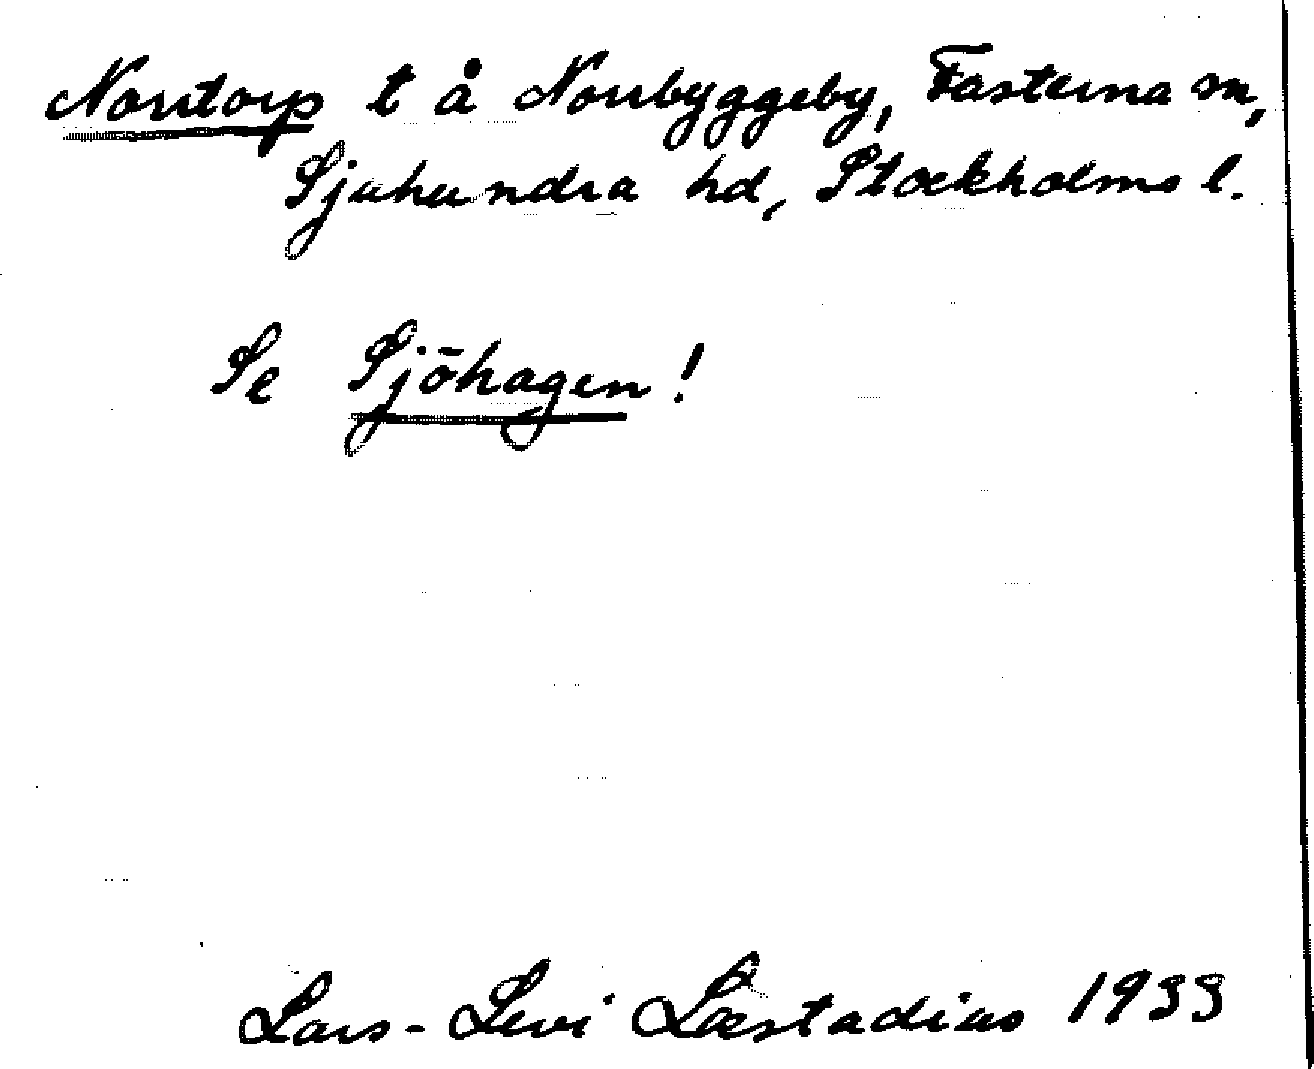 Norrtorp t å Norrbyggeby, Fasterna sn,
Sjuhundra hd, Stockholms l.
Se Sjöhagen!
Lars-Levi Læstadius 1933